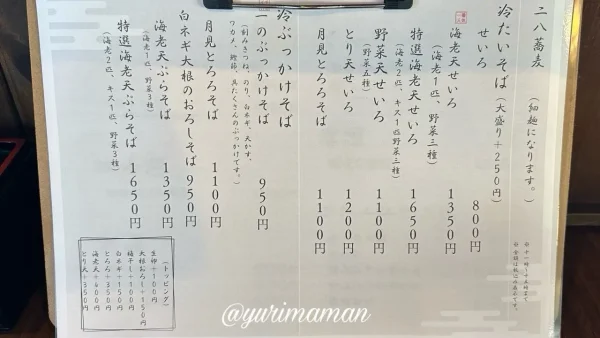 二八蕎麦
(細麺になります。)
冷たいそば(大盛り+250円)
せいろ 800円
海老天せいろ 1350円
(海老1匹、野菜三種)
特選海老天せいろ 1650円
(海老2匹、キス1匹野菜三種)
野菜天せいろ 1100円
(野菜五種)
とり天せいろ 1200円
月見とろろそば 1100円
冷ぶっかけそば
一のぶっかけそば 950円
(刻みきつね、のり、白ネギ、天かす、
ワカメ、鰹節、具だくさんのぶっかけです。)
月見とろろそば 1100円
白ネギ大根のおろしそば 950円
海老天ぷらそば 1350円
(海老1匹、野菜3種)
特選海老天ぷらそば 1650円
(海老2匹、キス1匹、野菜3種)
(トッピング)
生卵+100円
大根おろし+150円
梅干し+100円
白ネギ+150円
とろろ+350円
海老天+400円
とり天+350円
@yurimaman